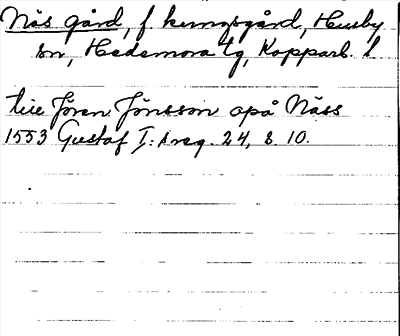 Näs gård, f kungsgård, Husby
sn, Hedemora tg, Kopparb. l
till Jören Jönsson opå Näss
1553 Gustaf I:s reg. 24, s. 10.